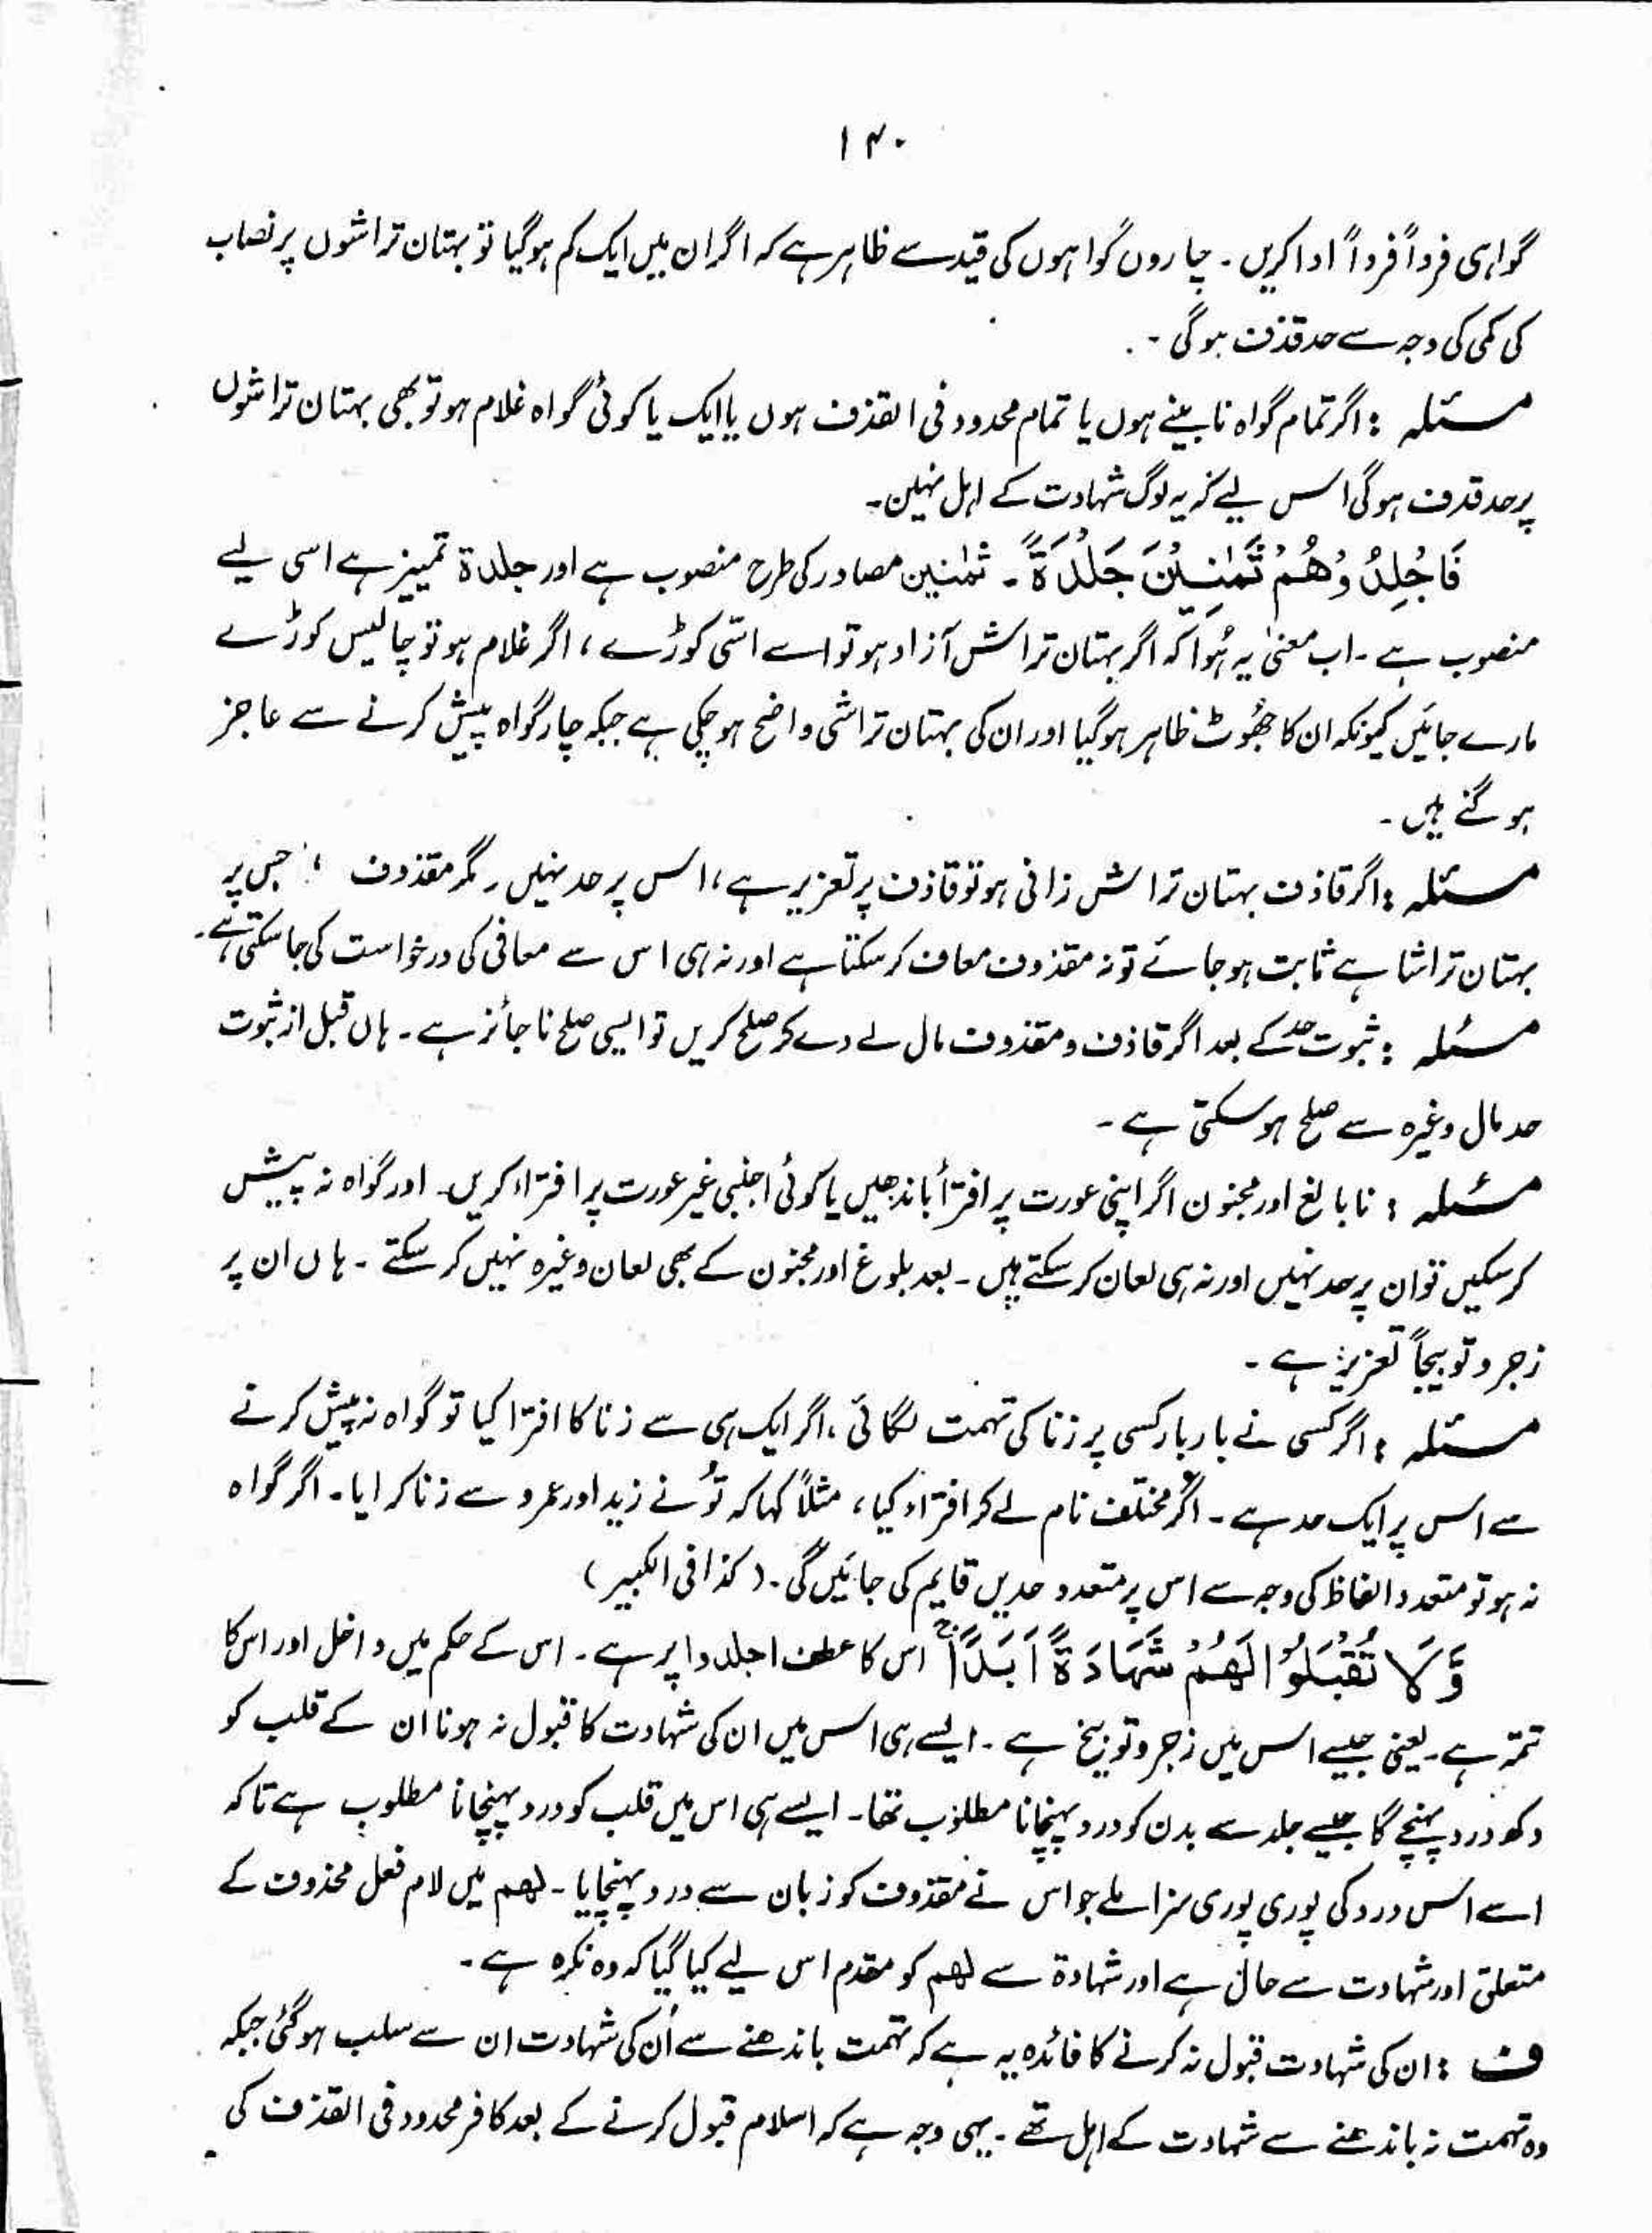 ۱۴۰
گواہی فرداً فرداً ادا کریں۔ چاروں گواہوں کی قید سے ظاہر ہے کہ اگر ان میں ایک کم ہو گیا تو بہتان تراشوں پر نصاب
کی کمی کی وجہ سے حد قذف ہوگی۔
مسئلہ : اگر تمام گواہ نابینے ہوں یا تمام محدود فی القذف ہوں یا ایک یا کوئی گواہ غلام ہو تو بھی بہتان تراشوں
پر حد قذف ہوگی اس لیے کہ یہ لوگ شہادت کے اہل نہیں۔
فَاجْلِدُوْهُمْ ثَمٰنِيْنَ جَلْدَةً۔ ثمٰنین مصادر کی طرح منصوب ہے اور جلدۃ تمییز ہے اسی لیے
منصوب ہے۔ اب معنیٰ یہ ہُوا کہ اگر بہتان تراش آزاد ہو تو اسے اسّی کوڑے ، اگر غلام ہو تو چالیس کوڑے
مارے جائیں کیونکہ ان کا جھُوٹ ظاہر ہو گیا اور ان کی بہتان تراشی واضح ہو چکی ہے جبکہ چار گواہ پیش کرنے سے عاجز
ہو گئے ہیں۔
مسئلہ : اگر قاذف بہتان تراش زانی ہو تو قاذف پر تعزیر ہے ، اس پر حد نہیں۔ مگر مقذوف ، جس پر
بہتان تراشا ہے ثابت ہو جائے تو نہ مقذوف معاف کر سکتا ہے اور نہ ہی اس سے معافی کی درخواست کی جا سکتی ہے۔
مسئلہ : ثبوت حد کے بعد اگر قاذف و مقذوف مال لے دے کر صلح کریں تو ایسی صلح ناجائز ہے۔ ہاں قبل از ثبوت
حد مال وغیرہ سے صلح ہو سکتی ہے۔
مسئلہ : نابالغ اور مجنون اگر اپنی عورت پر افترأ باندھیں یا کوئی اجنبی غیر عورت پر افتراء کریں۔ اور گواہ نہ پیش
کر سکیں تو ان پر حد نہیں اور نہ ہی لعان کر سکتے ہیں۔ بعد بلوغ اور مجنون کے بھی لعان وغیرہ نہیں کر سکتے۔ ہاں ان پر
زجر و توبیخاً تعزیر ہے۔
مسئلہ : اگر کسی نے بار بار کسی پر زنا کی تہمت لگائی ، اگر ایک ہی سے زنا کا افترا کیا تو گواہ نہ پیش کرنے
سے اس پر ایک حد ہے۔ اگر مختلف نام لے کر افتراء کیا ، مثلاً کہا کہ تُو نے زید اور عمرو سے زنا کرایا۔ اگر گواہ
نہ ہو تو متعدد الفاظ کی وجہ سے اس پر متعدد حدیں قایم کی جائیں گی۔ (کذا فی الکبیر)
وَّلَا تَقْبَلُوْا لَهُمْ شَهَادَةً اَبَدًاۚ اس کا عطف اجلدوا پر ہے۔ اس کے حکم میں داخل اور اس کا
تتمّہ ہے۔ یعنی جیسے اس میں زجر و توبیخ ہے۔ ایسے ہی اس میں ان کی شہادت کا قبول نہ ہونا ان کے قلب کو
دکھ درد پہنچے گا جیسے جلد سے بدن کو درد پہنچانا مطلوب تھا۔ ایسے ہی اس میں قلب کو درد پہنچانا مطلوب ہے تاکہ
اسے اس درد کی پوری پوری سزا ملے جو اس نے مقذوف کو زبان سے درد پہنچایا۔ لھم میں لام فعل محذوف کے
متعلق اور شہادت سے حال ہے اور شہادۃ سے لھم کو مقدم اس لیے کیا گیا کہ وہ نکرہ ہے۔
ف : ان کی شہادت قبول نہ کرنے کا فائدہ یہ ہے کہ تہمت باندھنے سے اُن کی شہادت ان سے سلب ہو گئی جبکہ
وہ تہمت نہ باندھنے سے شہادت کے اہل تھے۔ یہی وجہ ہے کہ اسلام قبول کرنے کے بعد کافر محدود فی القذف کی